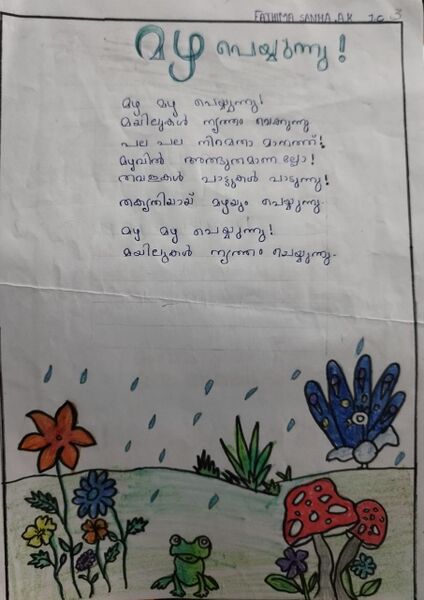 FATHIMA SANHA.A.K 7.C 3
മഴ പെയ്യുന്നു !
മഴ മഴ പെയ്യുന്നു!
മയിലുകൾ നൃത്തം വെക്കുന്നു
പല പല നിറമതാ മാനത്ത്!
മഴവിൽ അത്ഭുതമാണല്ലോ!
തവളകൾ പാട്ടുകൾ പാടുന്നു!
തകൃതിയായ് മഴയും പെയ്യുന്നു.
മഴ മഴ പെയ്യുന്നു!
മയിലുകൾ നൃത്തം ചെയ്യുന്നു.